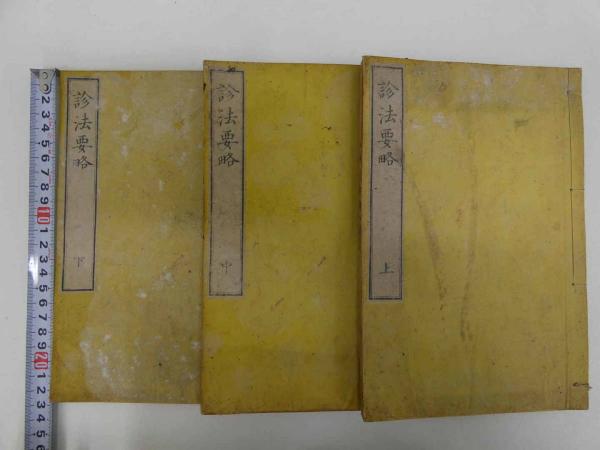 診法要略
上
診法要略
中
診法要略
下
2 3 4 5 6 7 8 9 10 1 2 3 4 5 6 7 8 9 20 1 2 3 4 5 6